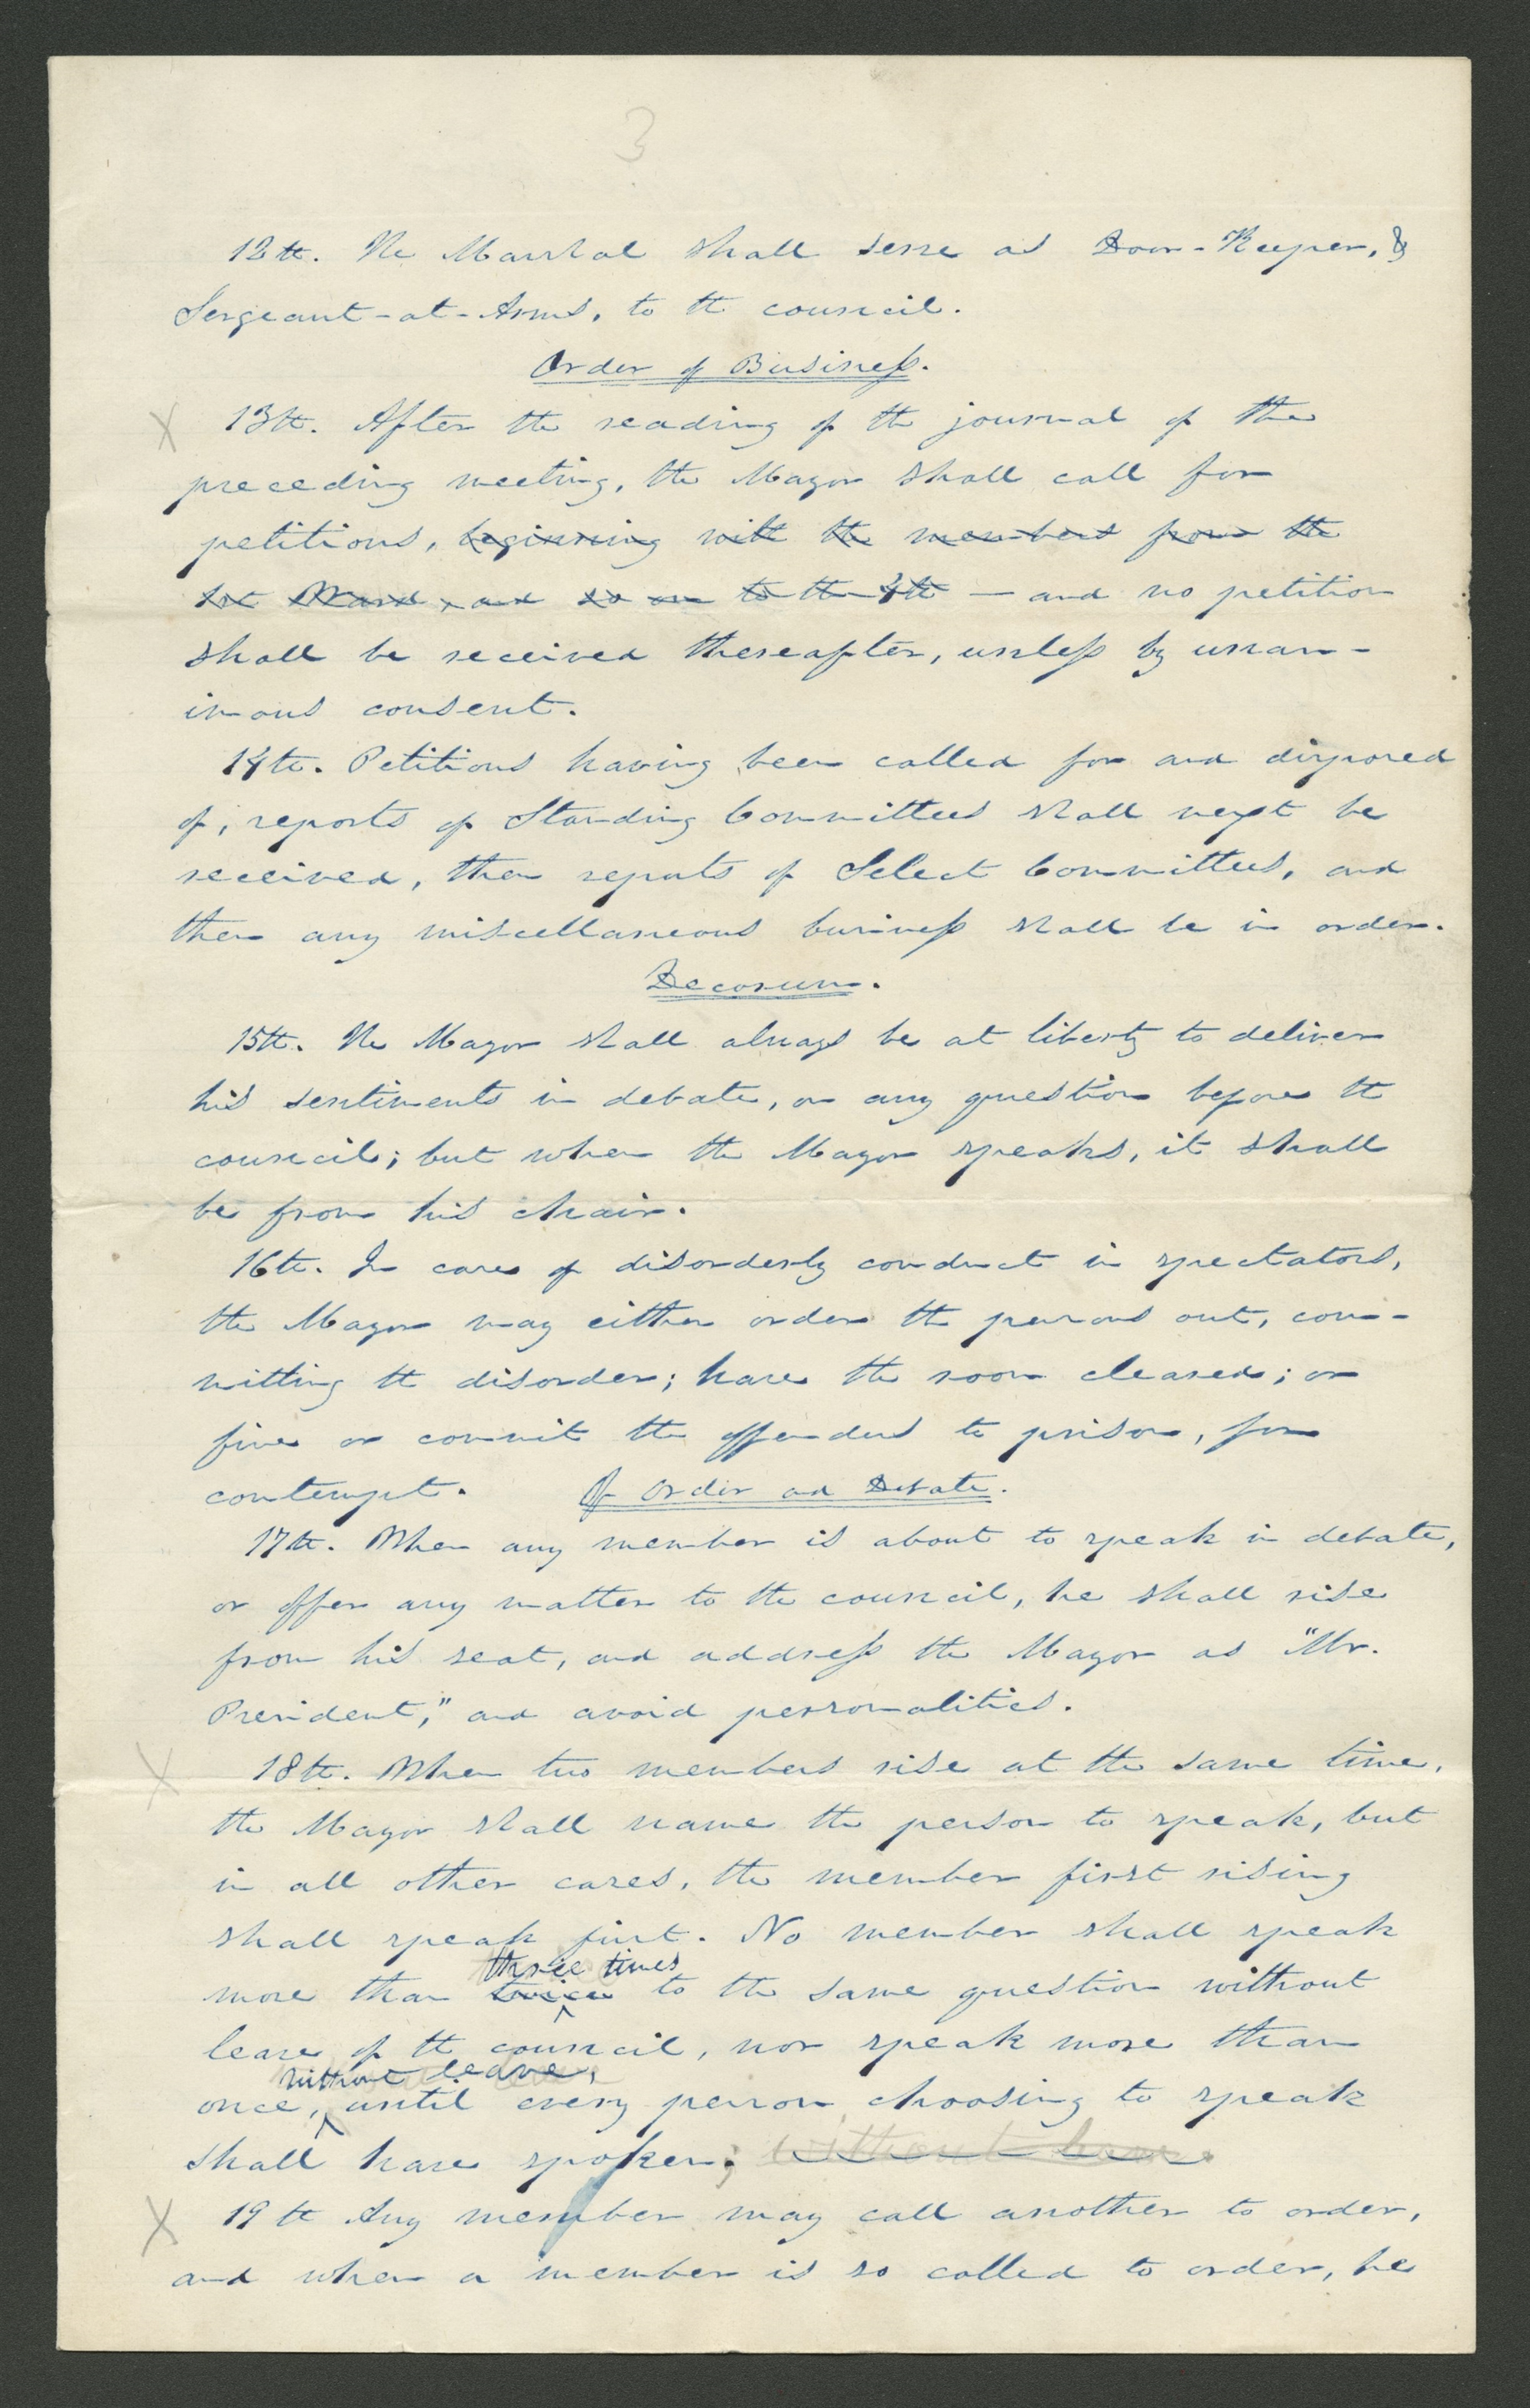 3
12th. The Marshal shall serve as Door-Keeper, &
Sergeant-at-Arms, to the council.
Order of Business.
X 13th. After the reading of the journal of the
preceding meeting, the Mayor shall call for
petitions, beginning with the members from the
1st Ward, and so on to the 4th — and no petition
shall be received thereafter, unless by unan-
imous consent.
14th. Petitions having been called for and disposed
of, reports of Standing Committees shall next be
received, then reports of Select Committees, and
then any miscellaneous business shall be in order.
Decorum.
15th. The Mayor shall always be at liberty to deliver
his sentiments in debate, on any question before the
council; but when the Mayor speaks, it shall
be from his chair.
16th. In case of disorderly conduct in spectators,
the Mayor may either order the persons out, com-
mitting the disorder; have the room cleared; or
fine or commit the offenders to prison, for
contempt. Of Order and Debate.
17th. When any member is about to speak in debate,
or offer any matter to the council, he shall rise
from his seat, and address the Mayor as "Mr.
President," and avoid personalities.
X 18th. When two members rise at the same time,
the Mayor shall name the person to speak, but
in all other cases, the member first rising
shall speak first. No member shall speak
three times
more than twice to the same question without
leave of the council, nor speak more than
without leave,
once, until every person choosing to speak
shall have spoken; without leave.
X 19th Any member may call another to order,
and when a member is so called to order, he